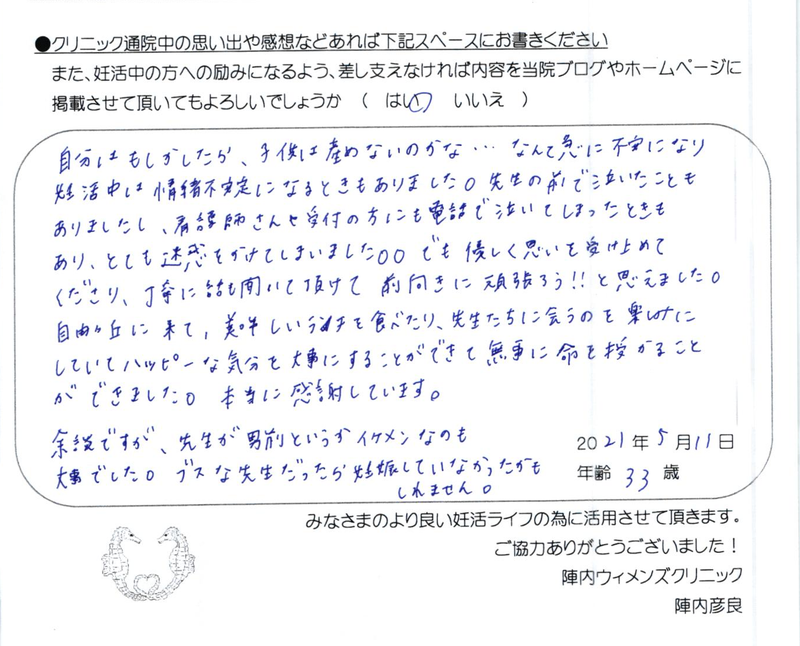 ●クリニック通院中の思い出や感想などあれば下記スペースにお書きください
また、妊活中の方への励みになるよう、差し支えなければ内容を当院ブログやホームページに
掲載させて頂いてもよろしいでしょうか （ はい いいえ ）
自分はもしかしたら、子供は産めないのかな… なんて急に不安になり
妊活中は情緒不安定になるときもありました。先生の前で泣いたことも
ありましたし、看護師さんや受付の方にも電話で泣いてしまったときも
あり、とても迷惑をかけてしまいました。。でも優しく思いを受け止めて
くださり、丁寧に話も聞いて頂けて前向きに頑張ろう!!と思えました。
自由が丘に来て、美味しいうどんを食べたり、先生たちに会うのを楽しみに
していてハッピーな気分を大事にすることができて無事に命を授かること
ができました。本当に感謝しています。
余談ですが、先生が男前というかイケメンなのも
大事でした。ブスな先生だったら妊娠していなかったかも
しれません。
2021年5月11日
年齢 33 歳
みなさまのより良い妊活ライフの為に活用させて頂きます。
ご協力ありがとうございました！
陣内ウィメンズクリニック
陣内彦良